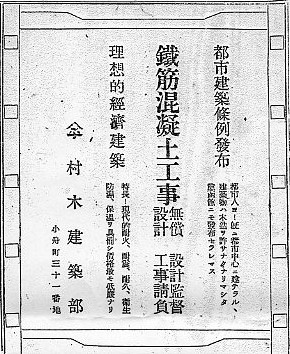 都市建築條例發布
都市人ヨ一版ニ都市中心ニ建テラル、
建築物ハ木造ヲ許サナクナリマシタ
ニモ發布セラレマス
鐵筋混凝土工事
無償 設計監督
設計 工事請負
理想的經濟建築
特長ハ現代的耐火、耐震、耐久、衛生
防濕、保温ヲ具備シ價格最モ低廉ナリ
村木建築部
小舟町三十一番地